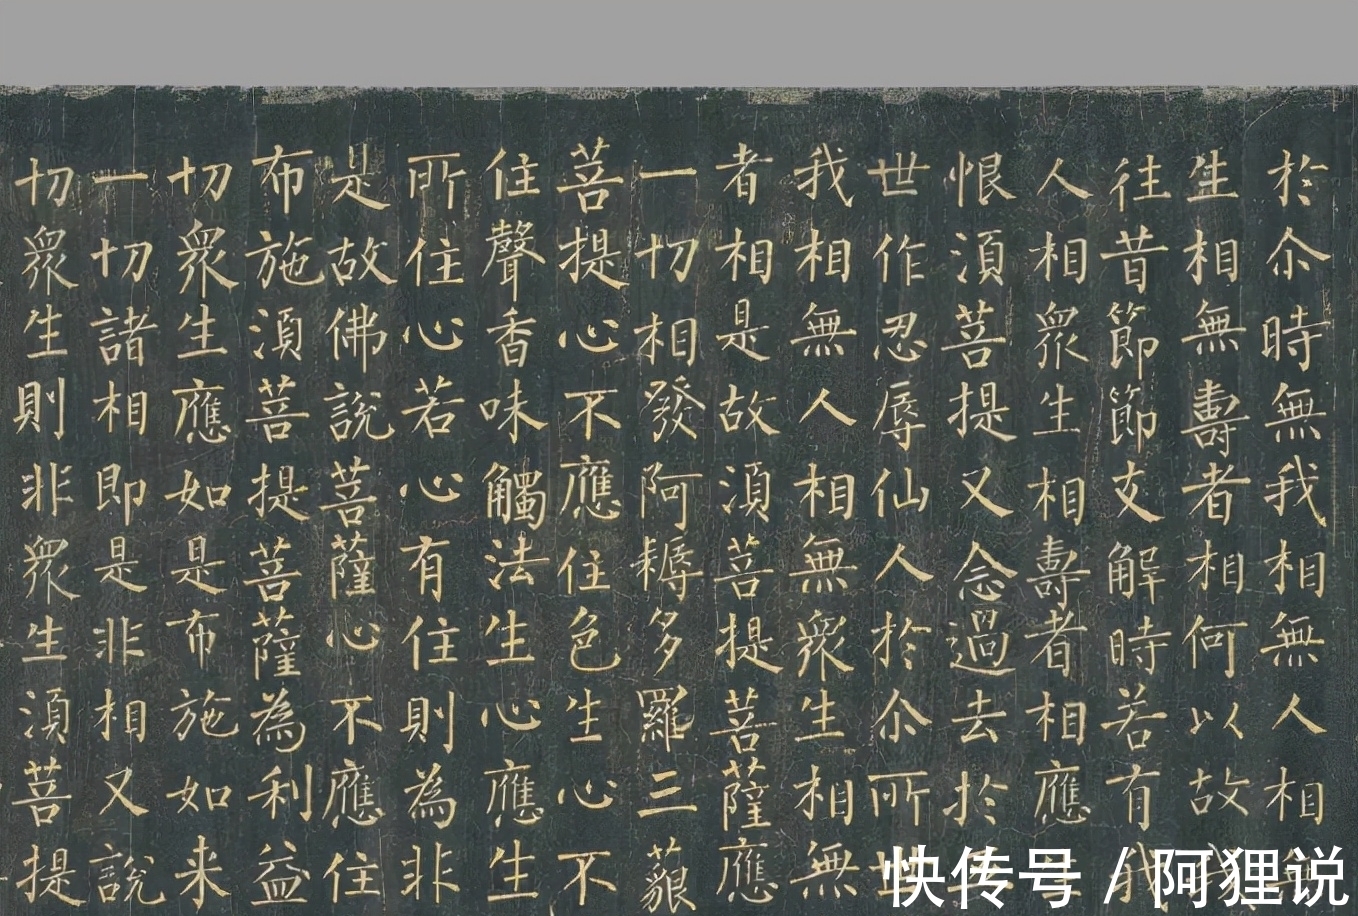 於尒時無我相無人相無
生相無壽者相何以故我
往昔節節支解時若有我
人相衆生相壽者相應
恨湏菩提又念過去於
世作忍辱仙人於尒所世
我相無人相無衆生相無
者相是故湏菩提菩薩應
一切相發阿耨多羅三藐
菩提心不應住色生心不
住聲香味觸法生心應生
所住心若心有住則為非
是故佛說菩薩心不應住
布施湏菩提菩薩為利益
切衆生應如是布施如来
一切諸相即是非相又說
切衆生則非衆生湏菩提
快传号 / 阿狸说